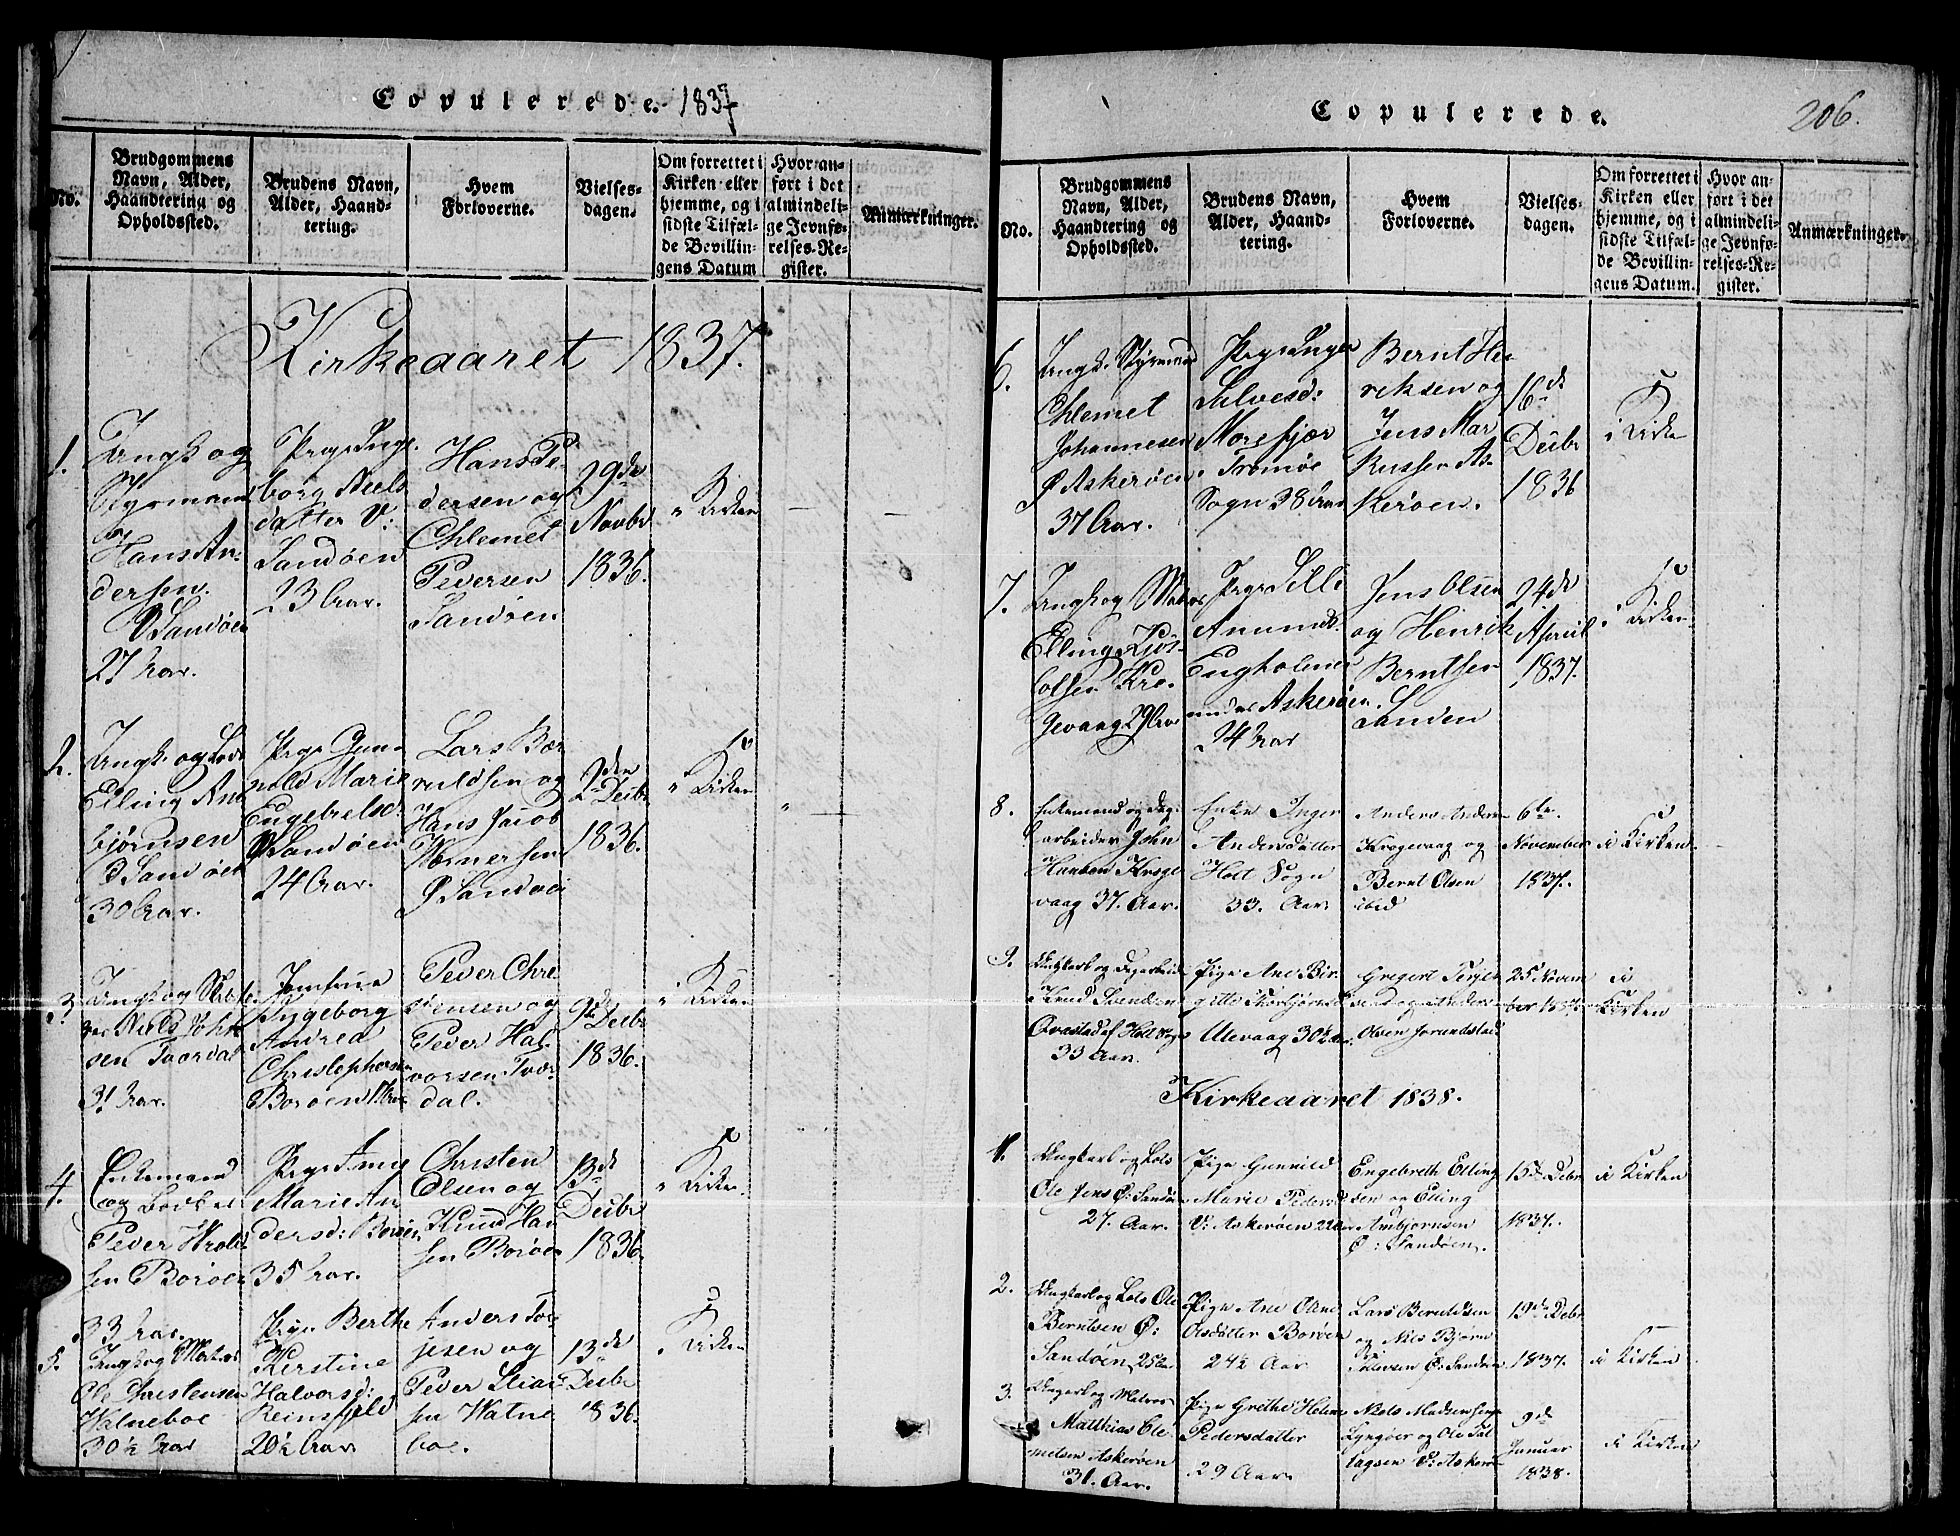 Copulerede. 1837
No.
Brudgommens
Navn, Alder,
Haandtering og
Opholdssted.
Brudens Navn,
Alder, Haand-
tering.
Hvem
Forloverne.
Vielses-
dagen.
Om forrettet i
Kirken eller
hjemme, og i
sidste Tilfæl-
de Bevillin-
gens Datum
Hvor an-
ført i det
almindeli-
ge Jevnfø-
relses-Re-
gister.
Anmærkninger.
Kirkeaaret 1837.
1.
Ungk og
Styrmand
Hans An-
dersen.
V Sandøen
27 Aar.
Pige Inge-
borg Niels
datter V:
Sandøen
23 Aar.
Hans Pe-
dersen og
Chlemet
Pedersen
Sandøen
29de
Novbr
1836.
i Kirken
2.
Ungk. og Lods
Elling An-
bjørnsen
Ø Sandøen
30 Aar.
Pige Gun-
nild Marie
Engebretsd:
V Sandøen
24 Aar.
Lars Ber
nildsen og
Hans Jacob
Wernersen
Ø Sandøe
2den
Decbr
1836.
i Kirken
3.
Niels John
sen Tverdal
31 Aar.
Jomfrue
Ingeborg
Andrea
Christophersen
Borøen
Peder Chri
stensen og
Peder Hal-
vorsen Tvær
dal.
9de
Decbr
1836.
i Kirken
4.
Enkemand
og Lodser
Peder Wrold
sen Borøen
33 Aar.
Pige Anne
Marie An
dersd: Borøen
35 Aar.
Christen
Olsen og
Knud Han
sen Borøen
13de
Decbr
1836.
i Kirken
5.
Ungk og Matros
Ole Christensen
Watneboe
30½ Aar
Pige Berthe
Kerstine
Halvorsd:
Reinsfjeld
20½ Aar.
Anders Ter-
jesen og
Peder Elias
sen Watne
boe.
13de
Decbr
1836.
i Kirken
Copulerede. 206.
No.
Brudgommens
Navn, Alder,
Haandtering og
Opholdssted.
Brudens Navn,
Alder, Haand-
tering.
Hvem
Forloverne.
Vielses-
dagen.
Om forrettet i
Kirken eller
hjemme, og i
sidste Tilfæl-
de Bevillin-
gens Datum.
Hvor an-
ført i det
almindeli-
ge Jevnfø-
relses-Re-
gister.
Anmærkninger.
6.
Ungk. Styrmand
Chlemet
Johannesen
Ø Askerøen
37 Aar.
Pige Inger
Salvesd:
Morefjær
Tromøe
Sogn 28 Aar
Bernt Hen
riksen og
Jens Mar
kussen As-
kerøen.
16de
Decbr
1836
i Kirke
7.
Ungk og Matros
Elling Kjøs-
tolsen Kro-
gevaag 29 Aar
Pige Silli
Anundsd.
Engholmen
under Askerøen.
24 Aar
Jens Olsen
og Henrik
Berntsen
Sanden
24de
April
1837.
i Kirken
8.
Enkemand og Dag-
arbeider John
Hansen Kroge
vaag 37. Aar.
Enke Inger
Andersdatter
Holt Sogn
33. Aar.
Anders Anders
Krogevaag og
Bernt Olsen
ibid
6te
November
1837.
i Kirken
9.
Ungkarl og Dagarbeid
Knud
Qvastad af Holt Sogn
33 Aar.
Pige Ane Bir-
gitte Thorbjørnsd
Ulevaag 30½ Aar.
Gregert Terje
sen og Anders
Olsen Jorundstad
25de Novem
ber 1837.
i
Kirken
Kirkeaaret 1838.
1.
Ungkarl og Lods
Ole Jens Ø: Sandøen
27. Aar.
Pige Gunvild
Marie Pedersd
V: Askerøen 22 Aar
Engebreth Elling
sen og Elling
Ambjørnsen
Ø: Sandøen.
15de Debr
1837.
i Kirken
2.
Ungkarl og Lods Ole
Berntsen Ø:
Sandøen, 25 Aar
Pige Ane
Olsdatter Borøen
24½ Aar
Lars Berntsen
og Nils Bjørn
Ø: Sandøen
19de Debr
1837.
i Kirken
3.
Ungkarl og Matros
Matthias Cle
metsen Askerøen
31. Aar.
Pige Grethe Helene
Pedersdatter
29 Aar.
Niels Madsen
Lyngøer og Ole Sal
vagsen V: Askerø
9de
Januar
1838.
i Kirken